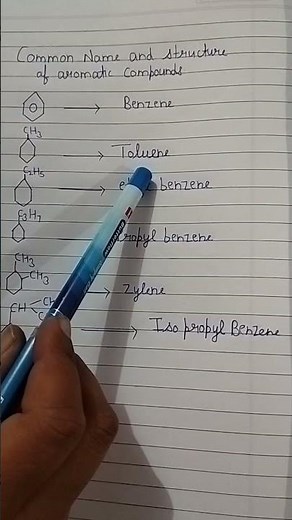 Common Name and structure
of aromatic compounds
Benzene
CH3
Toluene
C2H5
benzene
C3H7
propyl benzene
CH3
CH3
Zylene
CH
Iso propyl Benzene